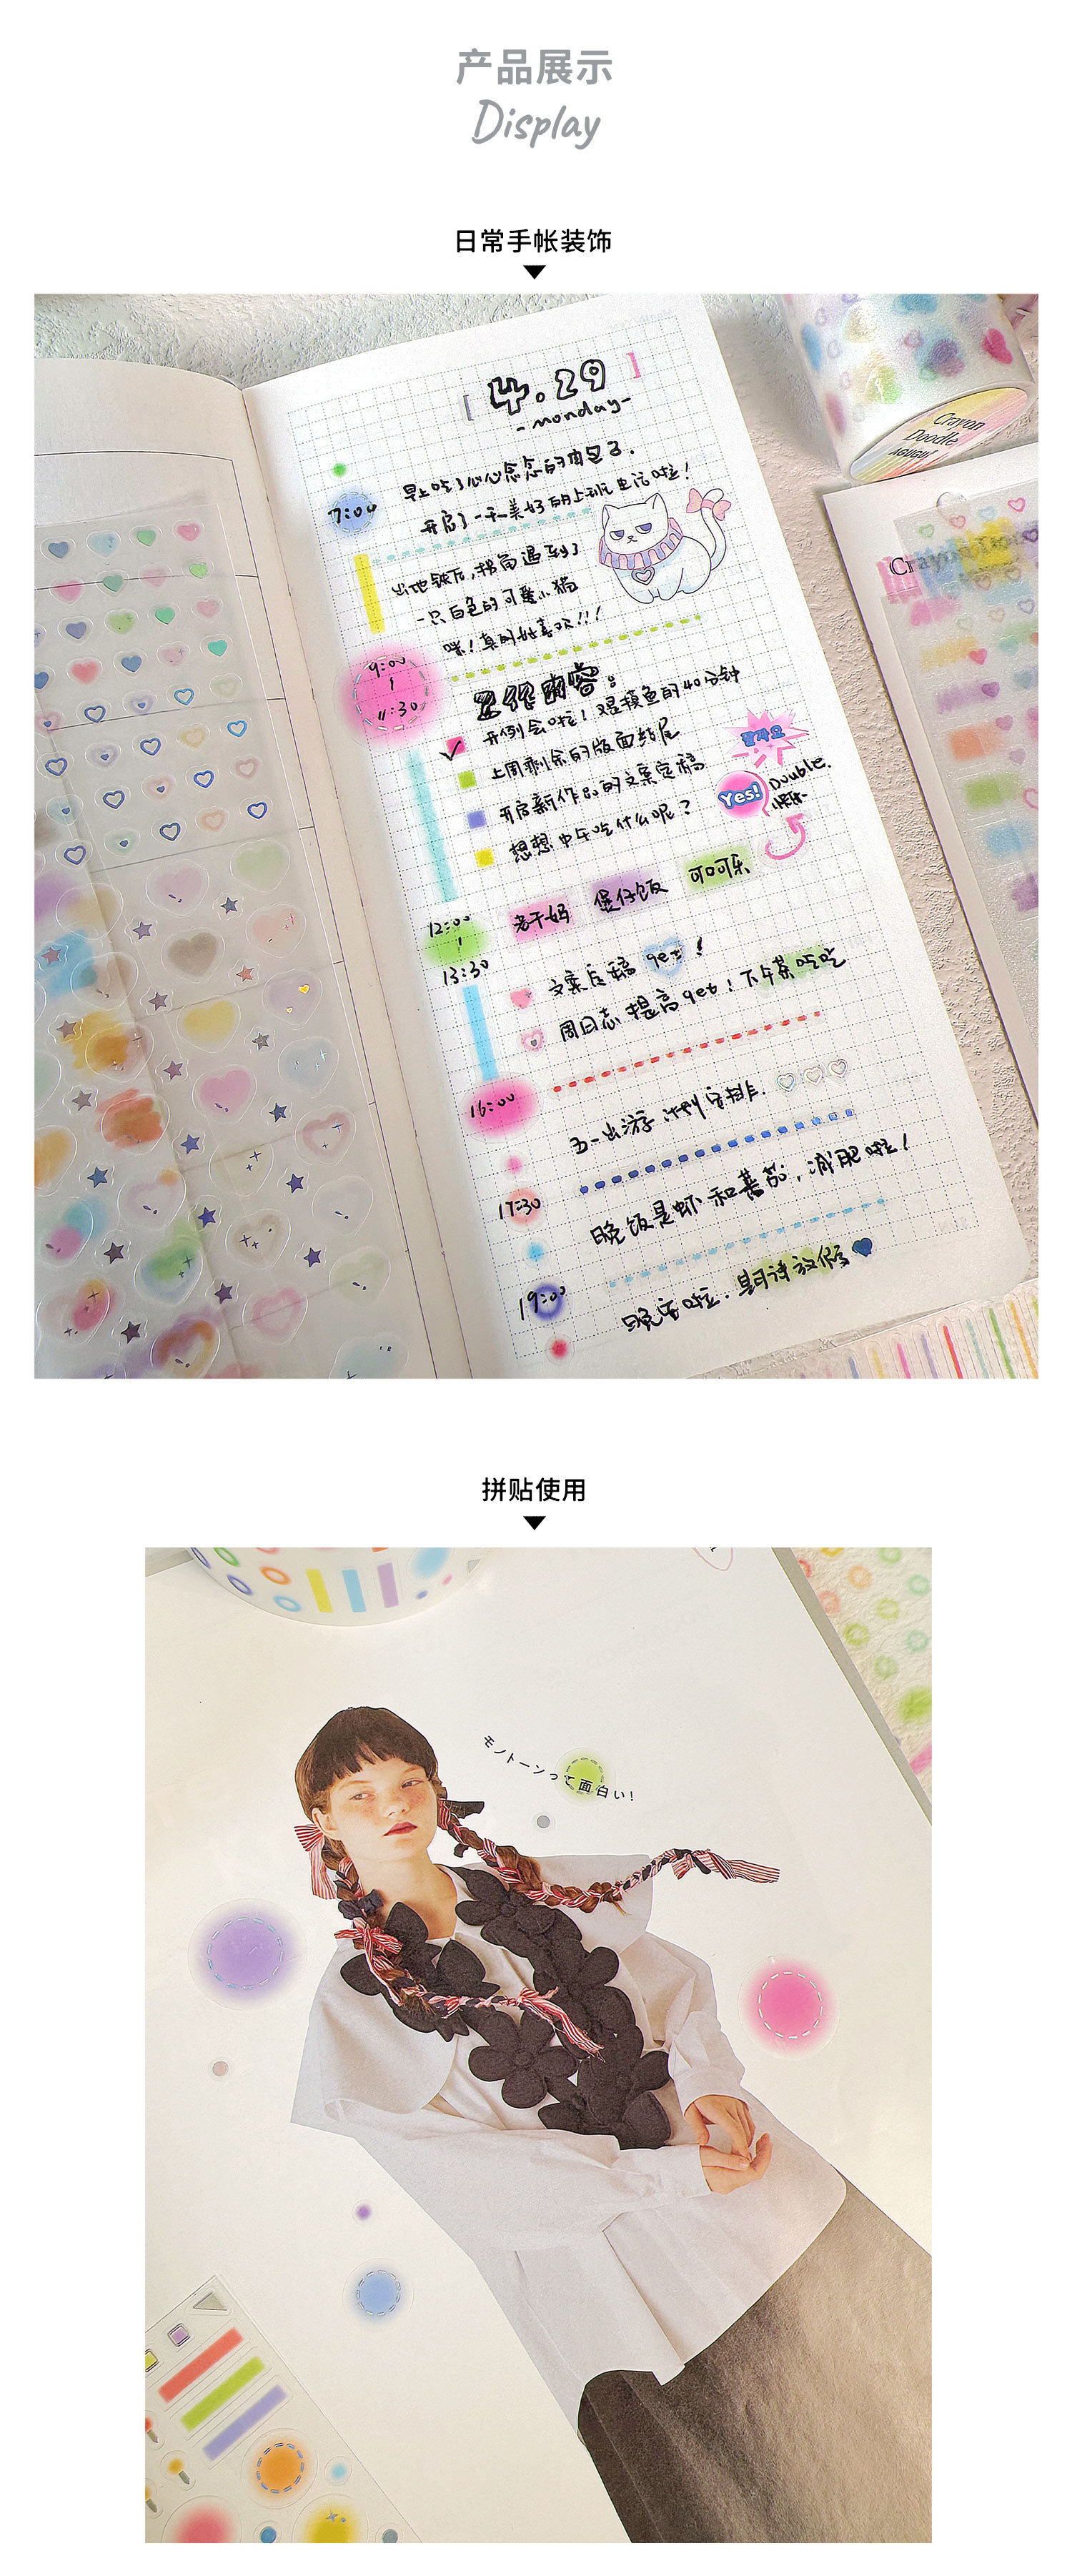 产品展示
Display
日常手帐装饰
[ 4.29 ]
-monday-
早上吃了心心念念的肉包子.
7:00
开启了一天美好的上班生活啦！
出地铁后,拐角遇到了
一只白色的可爱小猫
咪！真的好喜欢！！！
9:00
11:30
工作内容。
开例会啦！又是摸鱼的40分钟
上周剩余的版面结尾
开启新作品的文案定稿
想想中午吃什么呢？
Yes!
Double.
12:00
13:30
老干妈 煲仔饭 可口可乐
文案定稿 get！
周日志提高get！下午茶吃吃
16:00
五一出游计划安排.
17:30
晚饭是虾和番茄，减肥啦！
19:00
晚安啦.期待放假
Crayon
Doodle
拼贴使用
モノトーンって面白い！